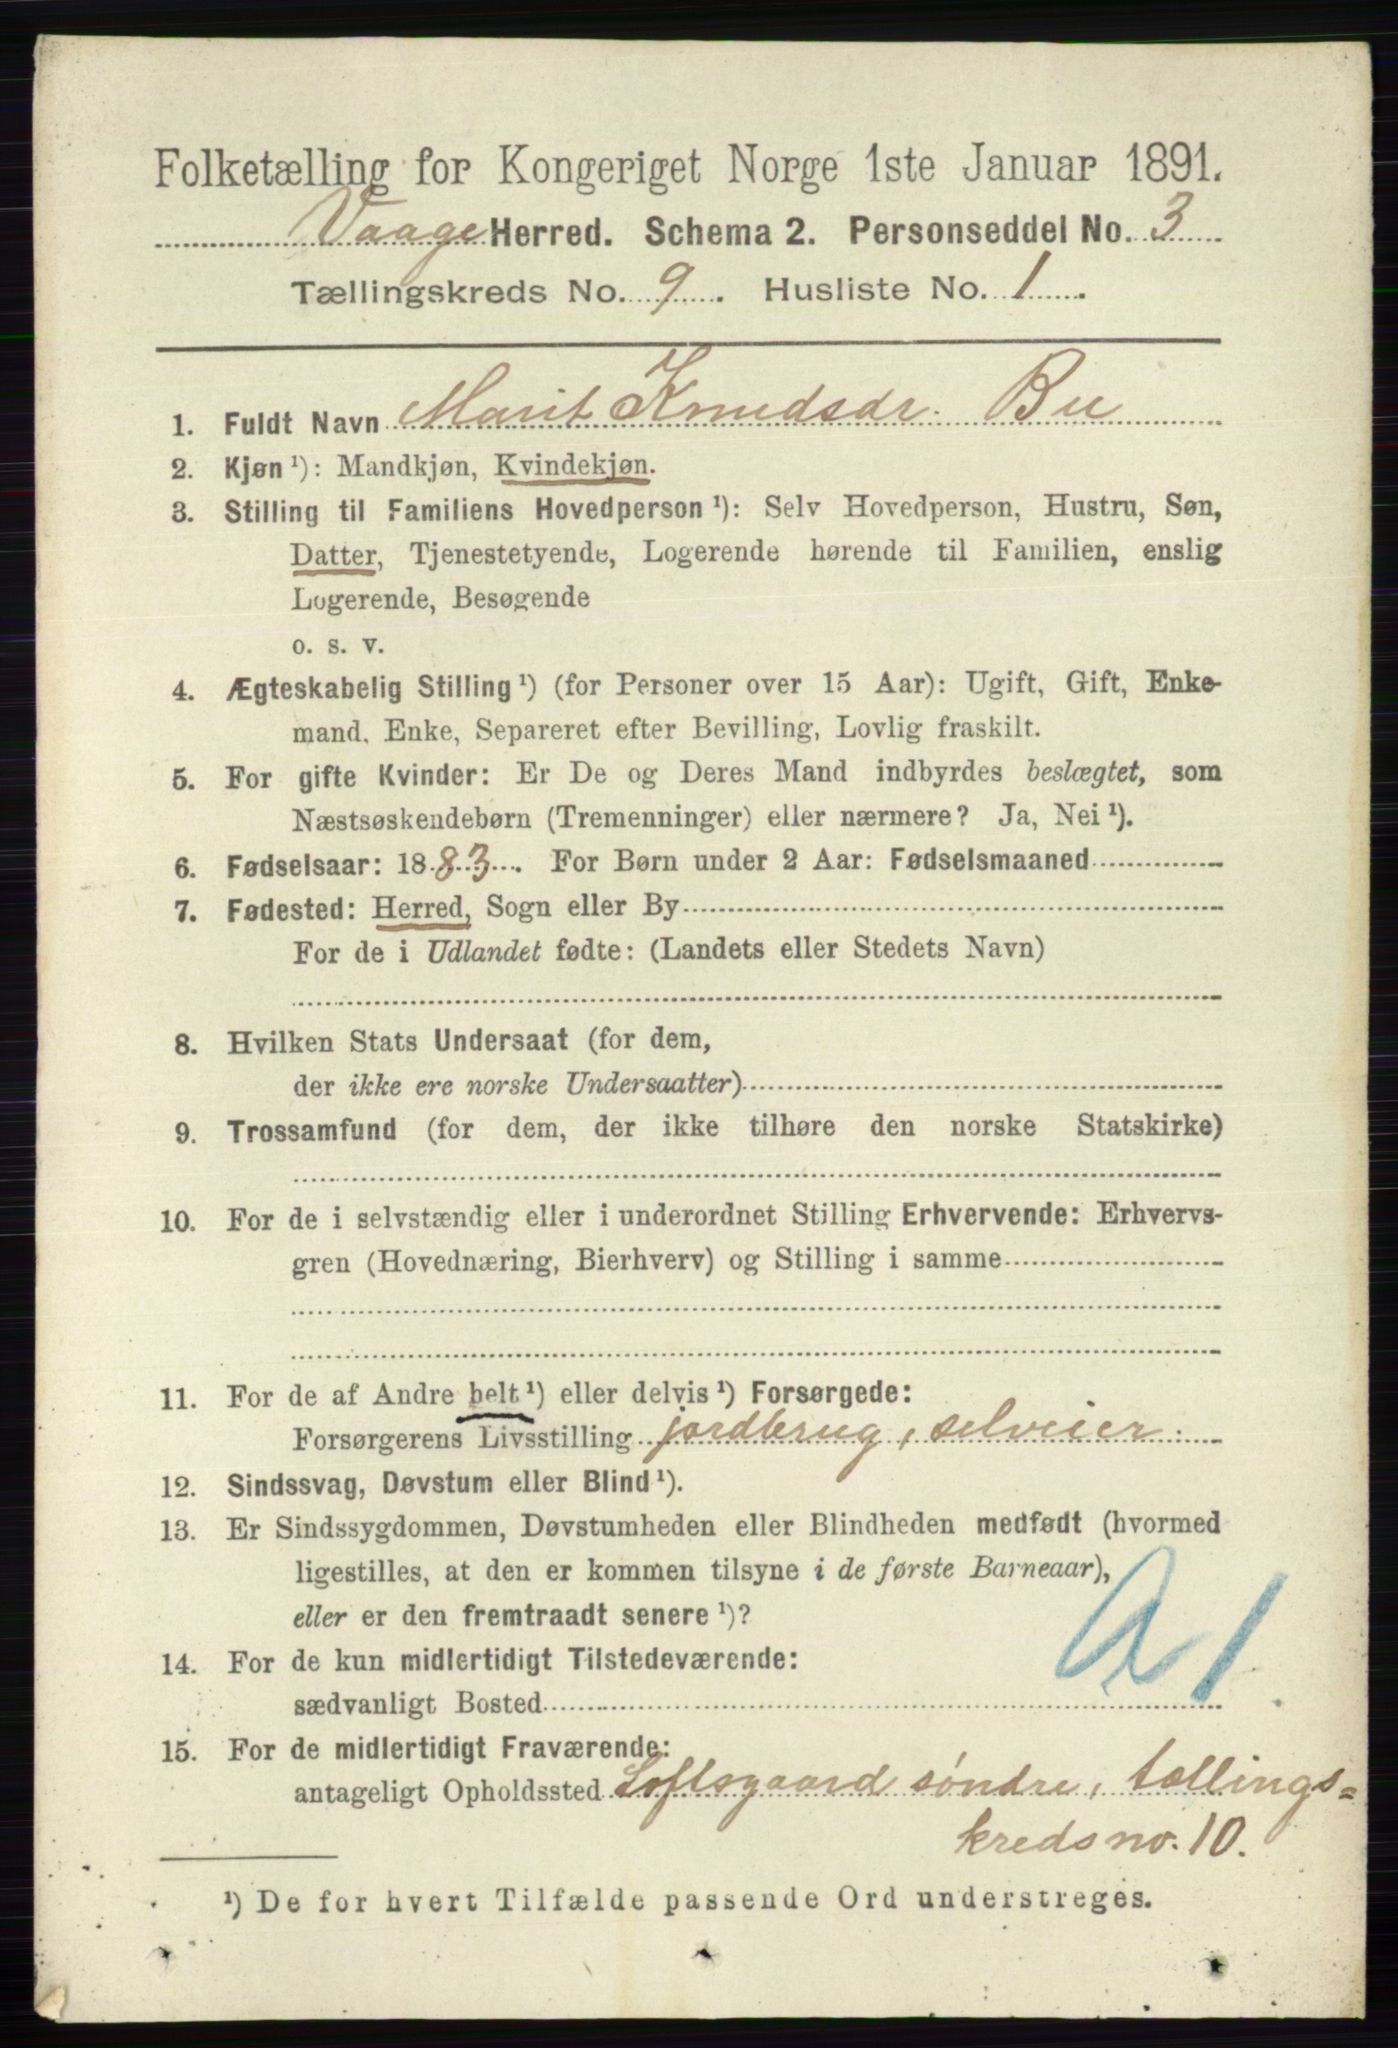 Folketælling for Kongeriget Norge 1ste Januar 1891.
Vaage Herred. Schema 2. Personseddel No. 3
Tællingskreds No. 9. Husliste No. 1.
1. Fuldt Navn Marit Knudsdr. Bu
2. Kjøn ¹): Mandkjøn, Kvindekjøn.
3. Stilling til Familiens Hovedperson ¹): Selv Hovedperson, Hustru, Søn,
Datter, Tjenestetyende, Logerende hørende til Familien, enslig
Logerende, Besøgende
o. s. v.
4. Ægteskabelig Stilling ¹) (for Personer over 15 Aar): Ugift, Gift, Enke-
mand, Enke, Separeret efter Bevilling, Lovlig fraskilt.
5. For gifte Kvinder: Er De og Deres Mand indbyrdes beslægtet, som
Næstsøskendebørn (Tremenninger) eller nærmere? Ja, Nei ¹).
6. Fødselsaar: 1883. For Børn under 2 Aar: Fødselsmaaned
7. Fødested: Herred, Sogn eller By
For de i Udlandet fødte: (Landets eller Stedets Navn)
8. Hvilken Stats Undersaat (for dem,
der ikke ere norske Undersaatter)
9. Trossamfund (for dem, der ikke tilhøre den norske Statskirke)
10. For de i selvstændig eller i underordnet Stilling Erhvervende: Erhvervs-
gren (Hovednæring, Bierhverv) og Stilling i samme
11. For de af Andre helt ¹) eller delvis ¹) Forsørgede:
Forsørgerens Livsstilling jordbrug, selveier.
12. Sindssvag, Døvstum eller Blind ¹).
13. Er Sindssygdommen, Døvstumheden eller Blindheden medfødt (hvormed
ligestilles, at den er kommen tilsyne i de første Barneaar),
eller er den fremtraadt senere ¹)?
14. For de kun midlertidigt Tilstedeværende:
sædvanligt Bosted
15. For de midlertidigt Fraværende:
antageligt Opholdssted Loftsgaard søndre, tællings=
kreds no. 10.
¹) De for hvert Tilfælde passende Ord understreges.